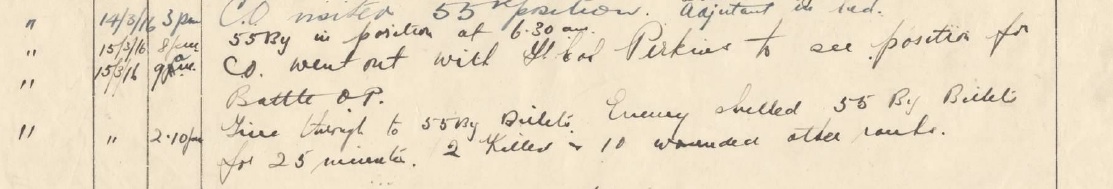 " 14/3/16 3 pm C.O. visited 55th position. Adjutant in bed.
" 15/3/16 8 pm 55 By in position at 6.30 am.
" 15/3/16 9 am. C.O. went out with Lt Col Perkins to see position for
Battle O.P.
" " 2.10 pm Line through to 55 By Billets. Enemy shelled 55 By Billets
for 25 minutes. 2 Killed & 10 wounded other ranks.